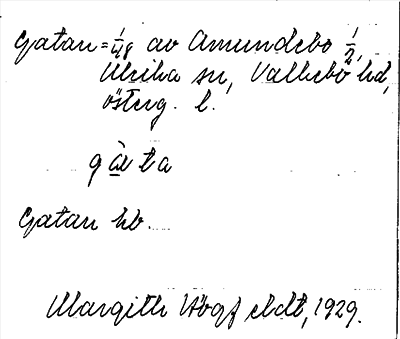 Gatan = 1/48 av Amundebo 1/2,
Ulrika sn, Valkebo hd,
Österg. l.
gàta
Gatan hb.
Margith Högfeldt, 1929.